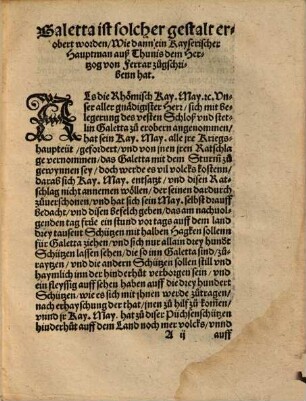 Galetta ist solcher gestalt er-
obert worden/ Wie dann ein Kayserischer
Hauptman auß Thunis dem Her-
tzog von Ferrar zůgschri-
benn hat.
ALs die Rhömisch Kay. May. ꝛc. Vn-
ser aller gnädigister Herr/ sich mit Be-
legerung des vesten Schloß vnd stet-
lin Galetta zů erobern angenommen/
hat sein Kay. May. alle jre Kriegs-
haupteüt/ gefordert/ vnd von jnen jren Ratschlag
ge vernommen/ das Galetta mit dem Sturm̃ zů
gewynnen sey/ doch werde es vil volcks kostenn/
darab sich Kay. May. entsatzt/ vnd disen Rat-
schlag nicht annemen wöllen/ der seinen dardurch
zůuerschonen/ vnd hat sich sein May. selbst drauff
bedacht/ vnd disen befelch geben/ das am nachuol-
genden tag früe ein stund vor tags auff dem land
drey tausent Schützen mit halben Hagken sollenn
für Galetta ziehen/ vnd sich nur allain drey hundert
Schützen lassen sehen/ die so inn Galetta sind/ zů-
raytzen/ vnd die andern Schützen sollen still vnd
haymlich inn der hinderhůt verborgen sein/ vnd
ein fleyssig auff sehen haben auff die drey hundert
Schützen/ wie es sich mit jhnen werde zůtragen/
nach erhayschung der that/ jnen zů hilff zů kom̃en/
vnnd jr Kay. May. hat zů diser Püchsenschützen
hinderhůt auff dem Land noch mer volcks/ vnnd
A ij auff